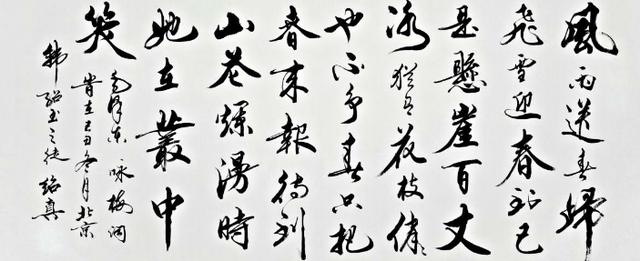 風雨送春歸
飛雪迎春到已
是懸崖百丈
冰猶有花枝俏
也不争春只把
春来報待到
山花爛漫時
她在叢中
笑
毛澤東 咏梅詞
岁在己丑冬月北京
韩 玉之徒 真